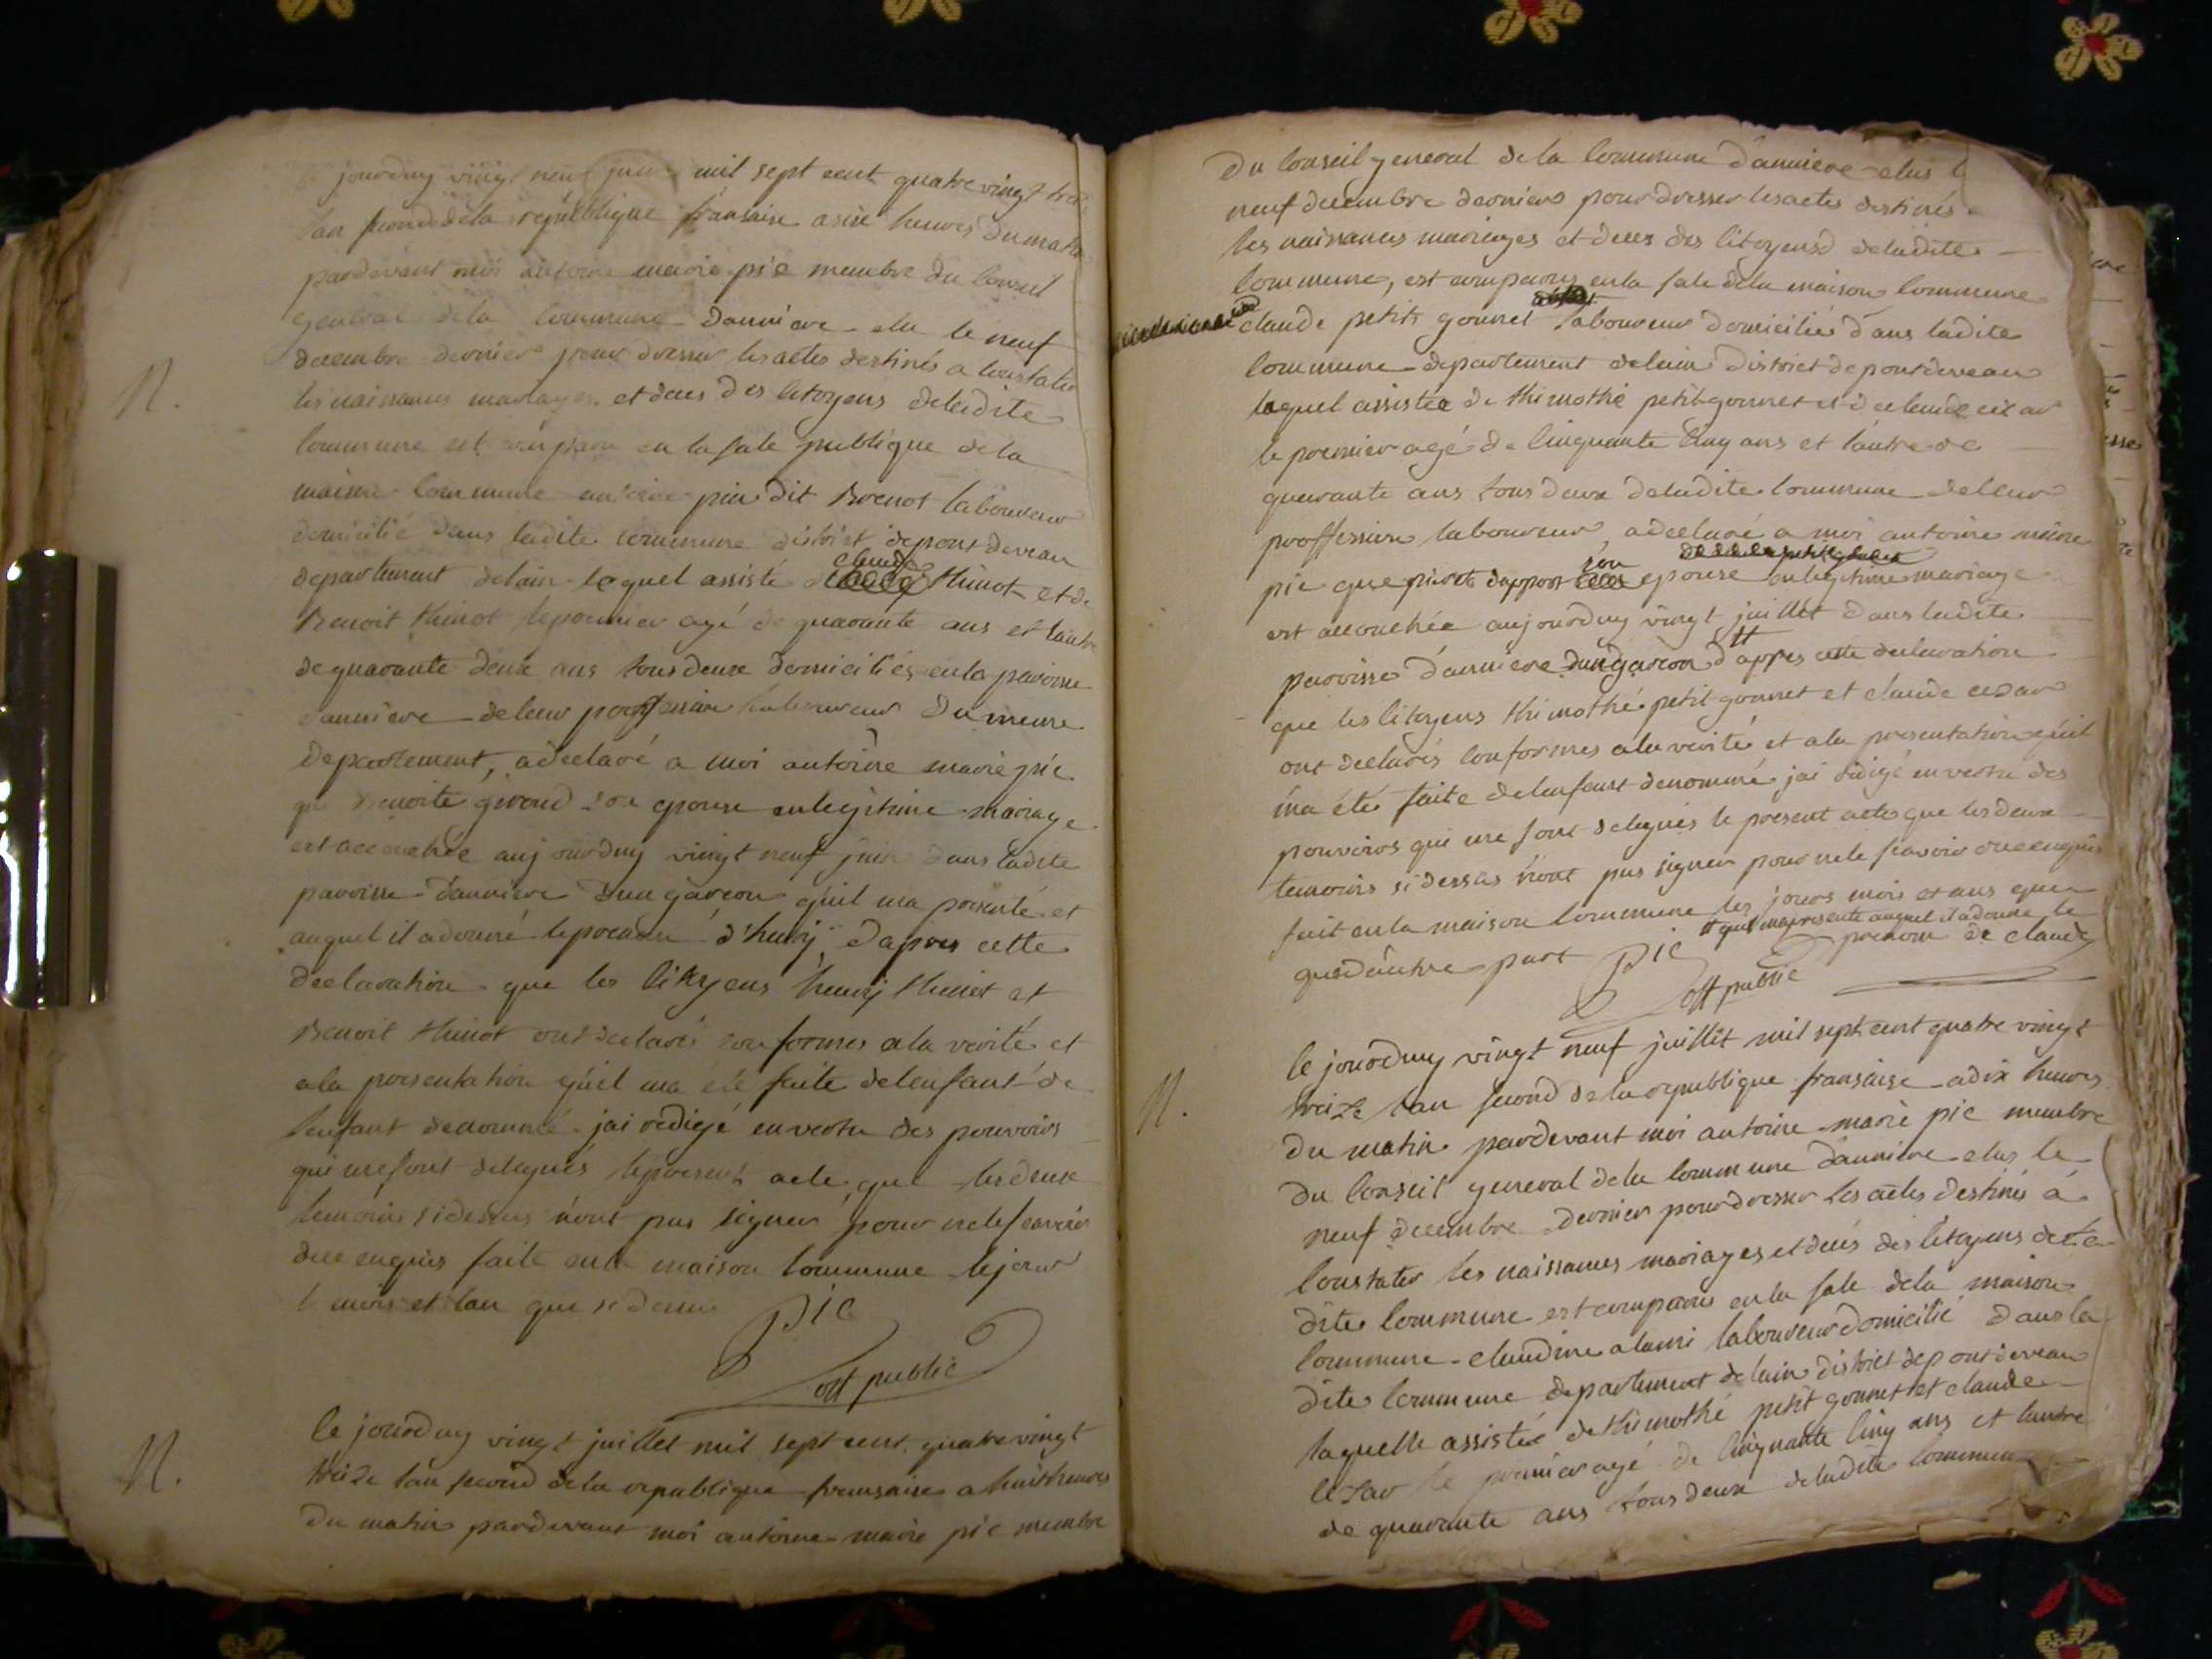 jourduy vingt neuf juin mil sept cent quatre vingt trei
lan second dela republique fransaise a sixe heures du matin
pardevant moi antoine marie pic membre du Conseil
general dela Commune d'anniere elu le neuf
decembre dernier pour dresser les actes destinés a Constater
N.
les naissances mariages et deces des Citoyens deladite
Commune est comparu en la sale publique de la
maison Commune antoine pin dit Brenot laboureur
domicilié dans ladite commune district depont deveau
departement delain lequel assisté de claude thinot et de
Benoit thinot lepremier agé de quarante ans et lautre
de quarante deux ans tous deux domiciliés en la paroisse
d'anniere deleur proffession laboureur du meme
departement, a declaré a moi antoine marie pic
que Benoite giroud son epouse enlegitime mariage
est accouchée aujourduy vingt neuf juin dans ladite
paroisse d'anniere dun garcon quil ma presenté et
auquel il a donné leprenom d'henrÿ d'apres cette
declaration que les Citoyens henrÿ thinot et
Benoit thinot ont declarés conformes a la verité et
ala presentation quil ma été faite delenfant de
lenfant denommé jai redigé envertu des pouvoirs
qui me sont delegués lepresent acte que les deux
temoins sidessus n'ont pas signer pour nele scavoir
duc enquis faite en la maison Commune lejour
le mois et lan que sidessus
pic
off public
N.
le jourduy vingt juillet mil sept cent quatre vingt
treize lan second dela republique fransaise a huit heures
du matin pardevant moi antoine marie pic membre
du Conseil general de la Commune d'anniere elus l
neuf decembre dernier pour dresser les actes destinés
les naissances mariages et deces des Citoyens deladite
Commune, est comparu en la sale dela maison Commune
claude petit gonnet laboureur domicilié dans ladite
Commune departement delain district depontdeveau
laquel assistée de thimothé petit gonnet et de claude cezar
le premier agé de Cinquante Cinq ans et l'autre de
quarante ans tous deux deladite Commune deleur
proffession laboureur, a declaré a moi antoine marie
pic que pierrete dappost son epouse enlegitime mariage
est accouchée aujourduy vingt juillet dans ladite
paroisse d'anniere dun garcon tt d'appres cette declaration
que les Citoyens thimothé petit gonnet et claude cezar
ont declarés Conformes ala verité et ala presentation quil
ma été faite delenfant denommé jai redigé envertu des
pouvoirs qui me sont delegués le present acte que les deux
temoins sidessus n'ont pas signer pour nele scavoir duc enquis
fait en la maison Commune les jours mois et ans que
quedautre part
tt quil ma presenté auquel il a donné le
prenom de claude
pic
off public
N.
le jourduy vingt neuf juillet mil sept cent quatre vingt
treize lan second de la republique fransaise a dix heures
du matin pardevant moi antoine marie pic membre
du Conseil general dela Commune d'anniere elus le
neuf decembre dernier pour dresser les actes destinés à
Constater les naissances mariages et decés des Citoyens dela
dite Commune est comparue en la sale dela maison
Commune claudine alami laboureur domicilié dans la
dite Commune departement delain district depontdeveau
laquelle assistée de thimothé petit gonnet et claude
cezar le premier agé de Cinquante Cinq ans et lautre
de quarante ans tous deux deladite Commune